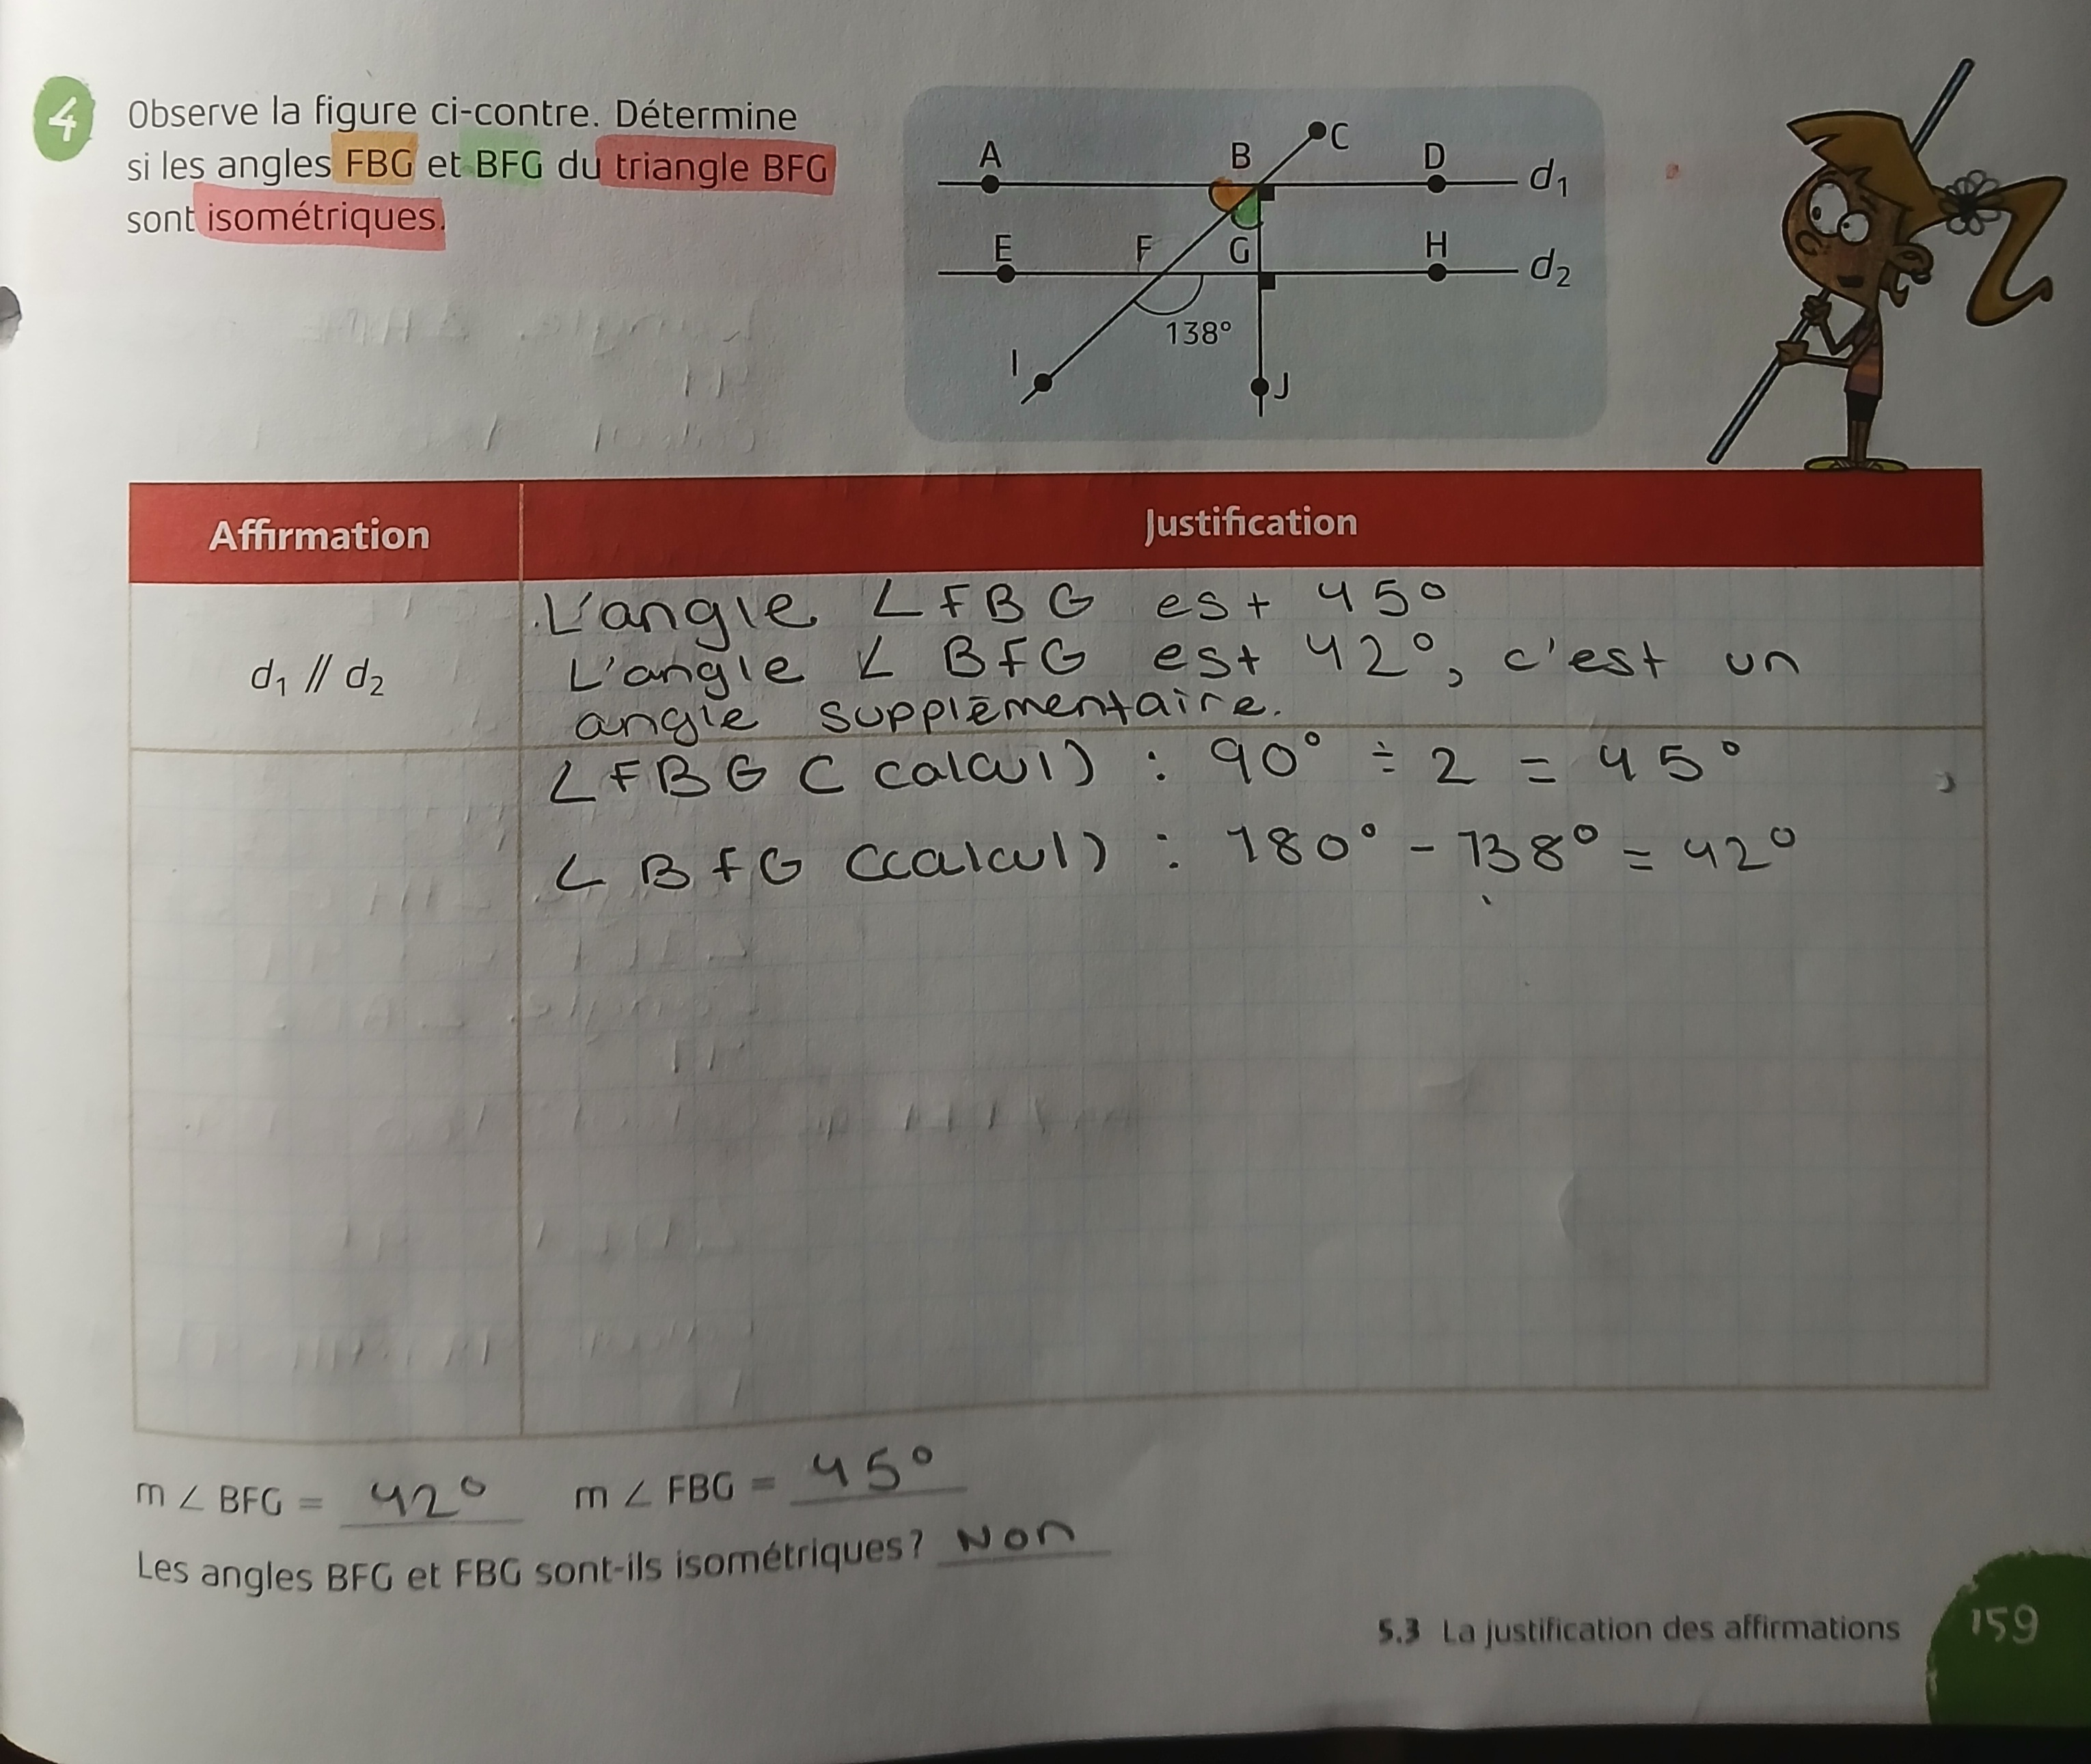 4
Observe la figure ci-contre. Détermine
si les angles FBG et BFG du triangle BFG
sont isométriques.
A B C D d₁
E F G H d₂
138°
I J
Affirmation Justification
L'angle ∠FBG est 45°
d₁ // d₂
L'angle ∠ BFG est 42°, c'est un
angle supplémentaire.
∠FBG (calcul) : 90° ÷ 2 = 45°
∠ BFG (calcul) : 180° - 138° = 42°
m ∠ BFG = 42° m ∠ FBG = 45°
Les angles BFG et FBG sont-ils isométriques? Non
5.3 La justification des affirmations 159